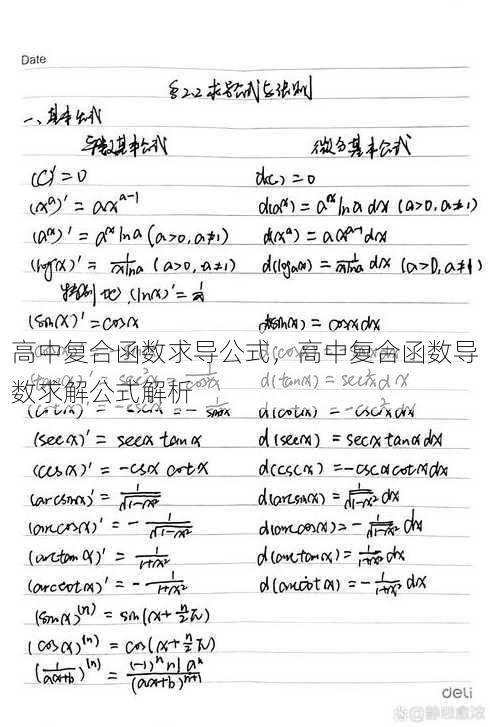 Date
§2.2 求导公式与法则
一、基本公式
导数基本公式 微分基本公式
(C)'=0 d(c)=0
(x^a)'=ax^{a-1} d(a^x)=a^x ln a dx (a>0,a≠1)
(a^x)'=a^x ln a (a>0,a≠1) d(x^a)=ax^{a-1}dx
(log_a x)'=1/(x ln a) (a>0,a≠1) d(log_a x)=1/(x ln a) dx (a>0,a≠1)
特别地,(ln x)'=1/x
(sin x)'=cos x d(sin x)=cos x dx
高中复合函数求导公式,高中复合函数导
数求解公式解析
d(tan x)=sec²x dx
d(cot x)=-csc²x dx
(sec x)'=sec x tan x d(sec x)=sec x tan x dx
(csc x)'=-csc x cot x d(csc x)=-csc x cot x dx
(arcsin x)'=1/√(1-x²) d(arcsin x)=1/√(1-x²) dx
(arccos x)'=-1/√(1-x²) d(arccos x)=-1/√(1-x²) dx
(arctan x)'=1/(1+x²) d(arctan x)=1/(1+x²) dx
(arccot x)'=-1/(1+x²) d(arccot x)=-1/(1+x²) dx
(sin x)^{(n)}=sin(x+n/2 π)
(cos x)^{(n)}=cos(x+n/2 π)
(1/(ax+b))^{(n)}=(-1)^n n! a^n/(ax+b)^{n+1}
deli